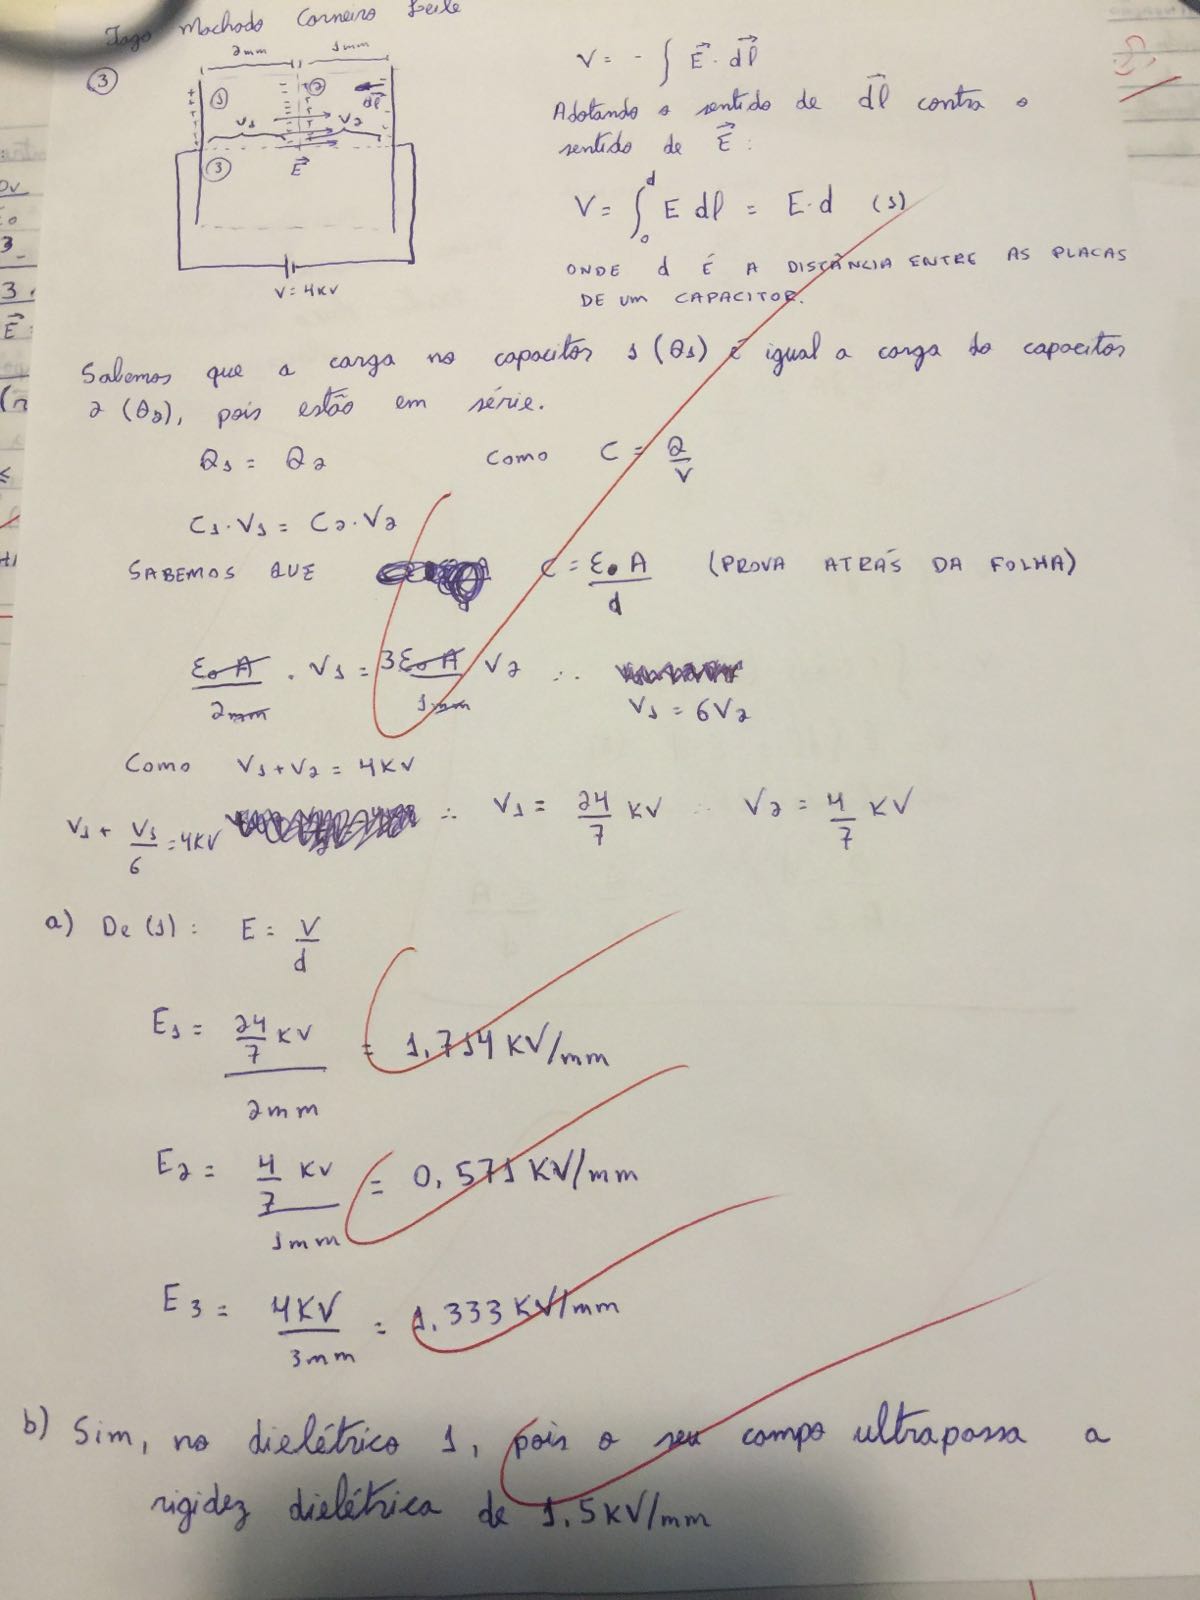 Iago Machado Carneiro Leite
③
2mm 1mm
① ②
dl
V1 V2
③ E
V=4KV
V = - ∫ E · dl
Adotando o sentido de dl contra o
sentido de E :
V = ∫₀ᵈ E dl = E·d (1)
ONDE d É A DISTÂNCIA ENTRE AS PLACAS
DE UM CAPACITOR.
Sabemos que a carga no capacitor 1 (Q1) é igual a carga do capacitor
2 (Q2), pois estão em série.
Q1 = Q2 Como C = Q/V
C1·V1 = C2·V2
SABEMOS QUE C = ε0 A/d (PROVA ATRÁS DA FOLHA)
ε0 A/2mm · V1 = 3ε0 A/1mm V2 ∴
V1 = 6V2
Como V1+V2 = 4KV
V1 + V1/6 = 4KV ∴ V1 = 24/7 KV ∴ V2 = 4/7 KV
a) De (1): E = V/d
E1 = 24/7 KV/2mm = 1,714 KV/mm
E2 = 4/7 KV/1mm = 0,571 KV/mm
E3 = 4KV/3mm = 1,333 KV/mm
b) Sim, no dielétrico 1, pois o seu campo ultrapassa a
rigidez dielétrica de 1,5KV/mm